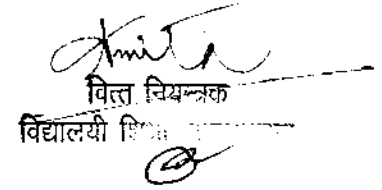 Amita
वित्त नियन्त्रक
विद्यालयी